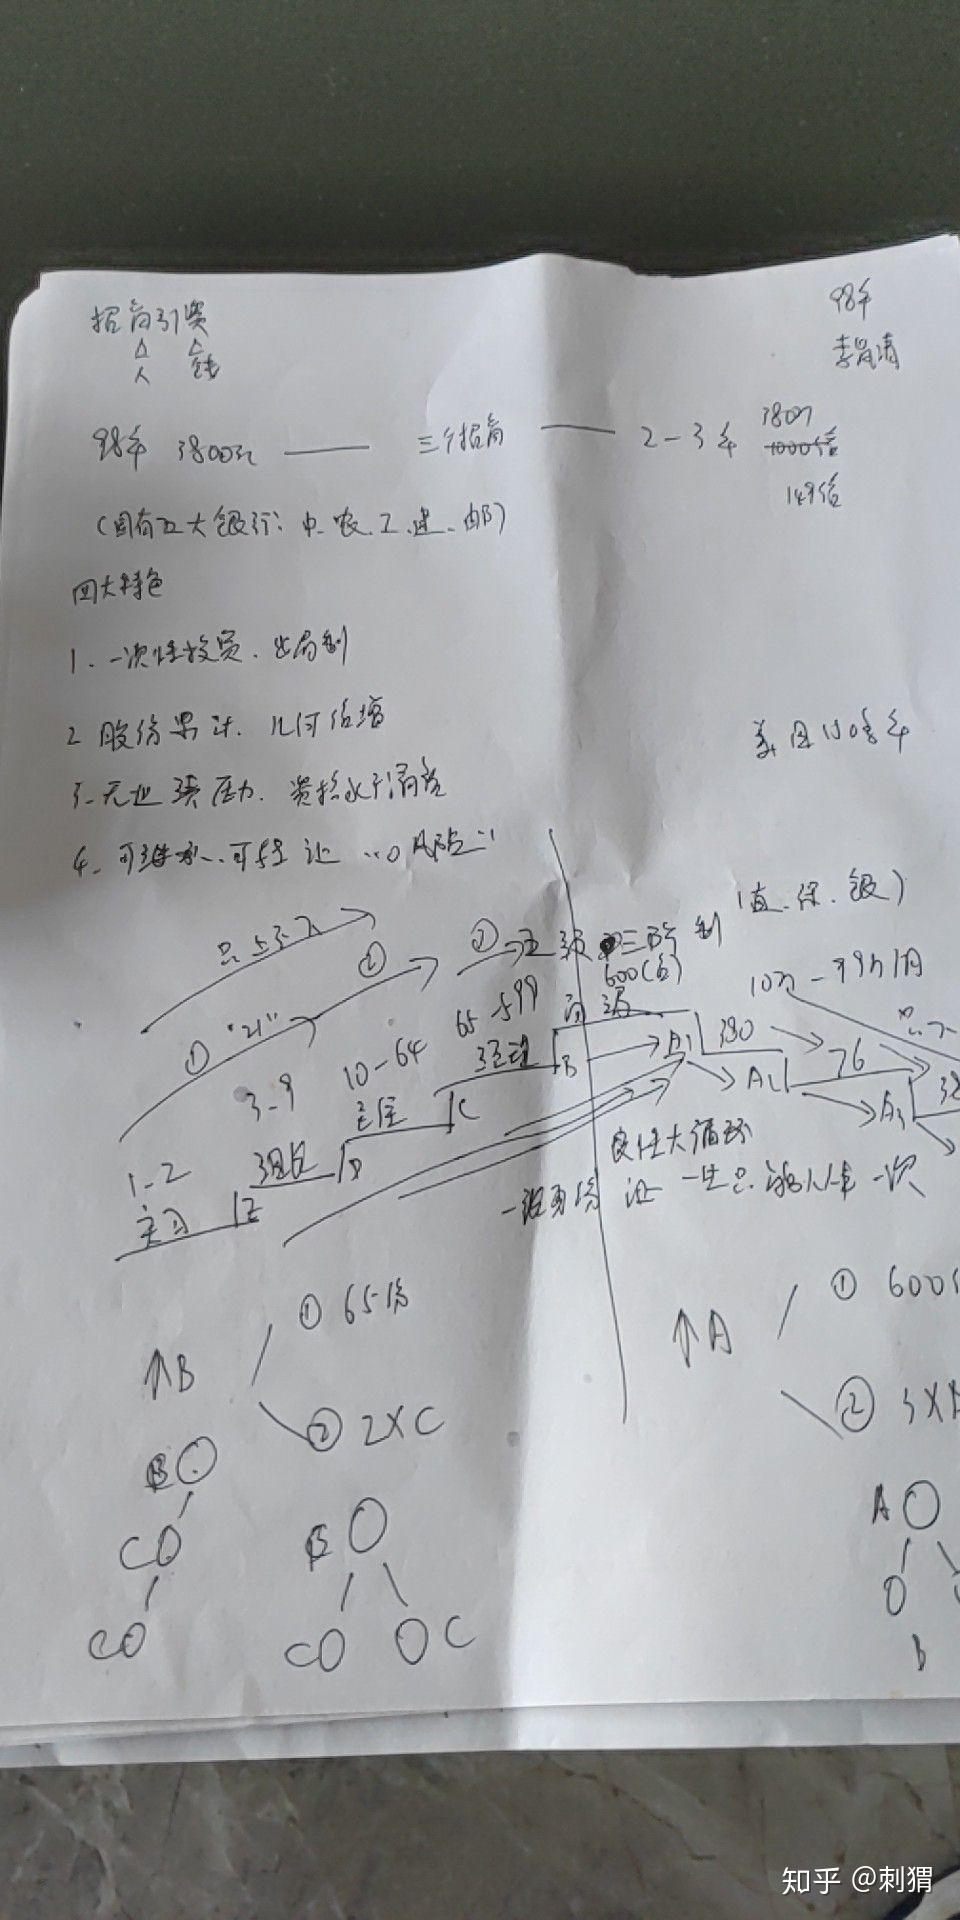 招商引资
人 钱
98年
李昌清
98年 3800元 —— 三个招商 —— 2-3年 380万
1000倍
149倍
(国有五大银行: 中.农.工.建.邮)
四大特色
1. 一次性投资. 出局制
2 股份累计. 几何倍增
3.无业绩压力. 资格永不清零
4. 可继承..可转让 “0风险”
美国110多年
(直.保.银)
只上不下
① "21" ② ② 五级三阶制
600(份)
10万-99万/月
只下
1-2 3-9 10-64 65-599
实习 E 组长 D 主任 C 经理 B A1 380 A2 76 A3 38
良性大循环
一证一生只能入单一次
↑B ① 65份
② 2XC
↑A ① 600
② 3X
B C C
B C C
A B
知乎 @刺猬